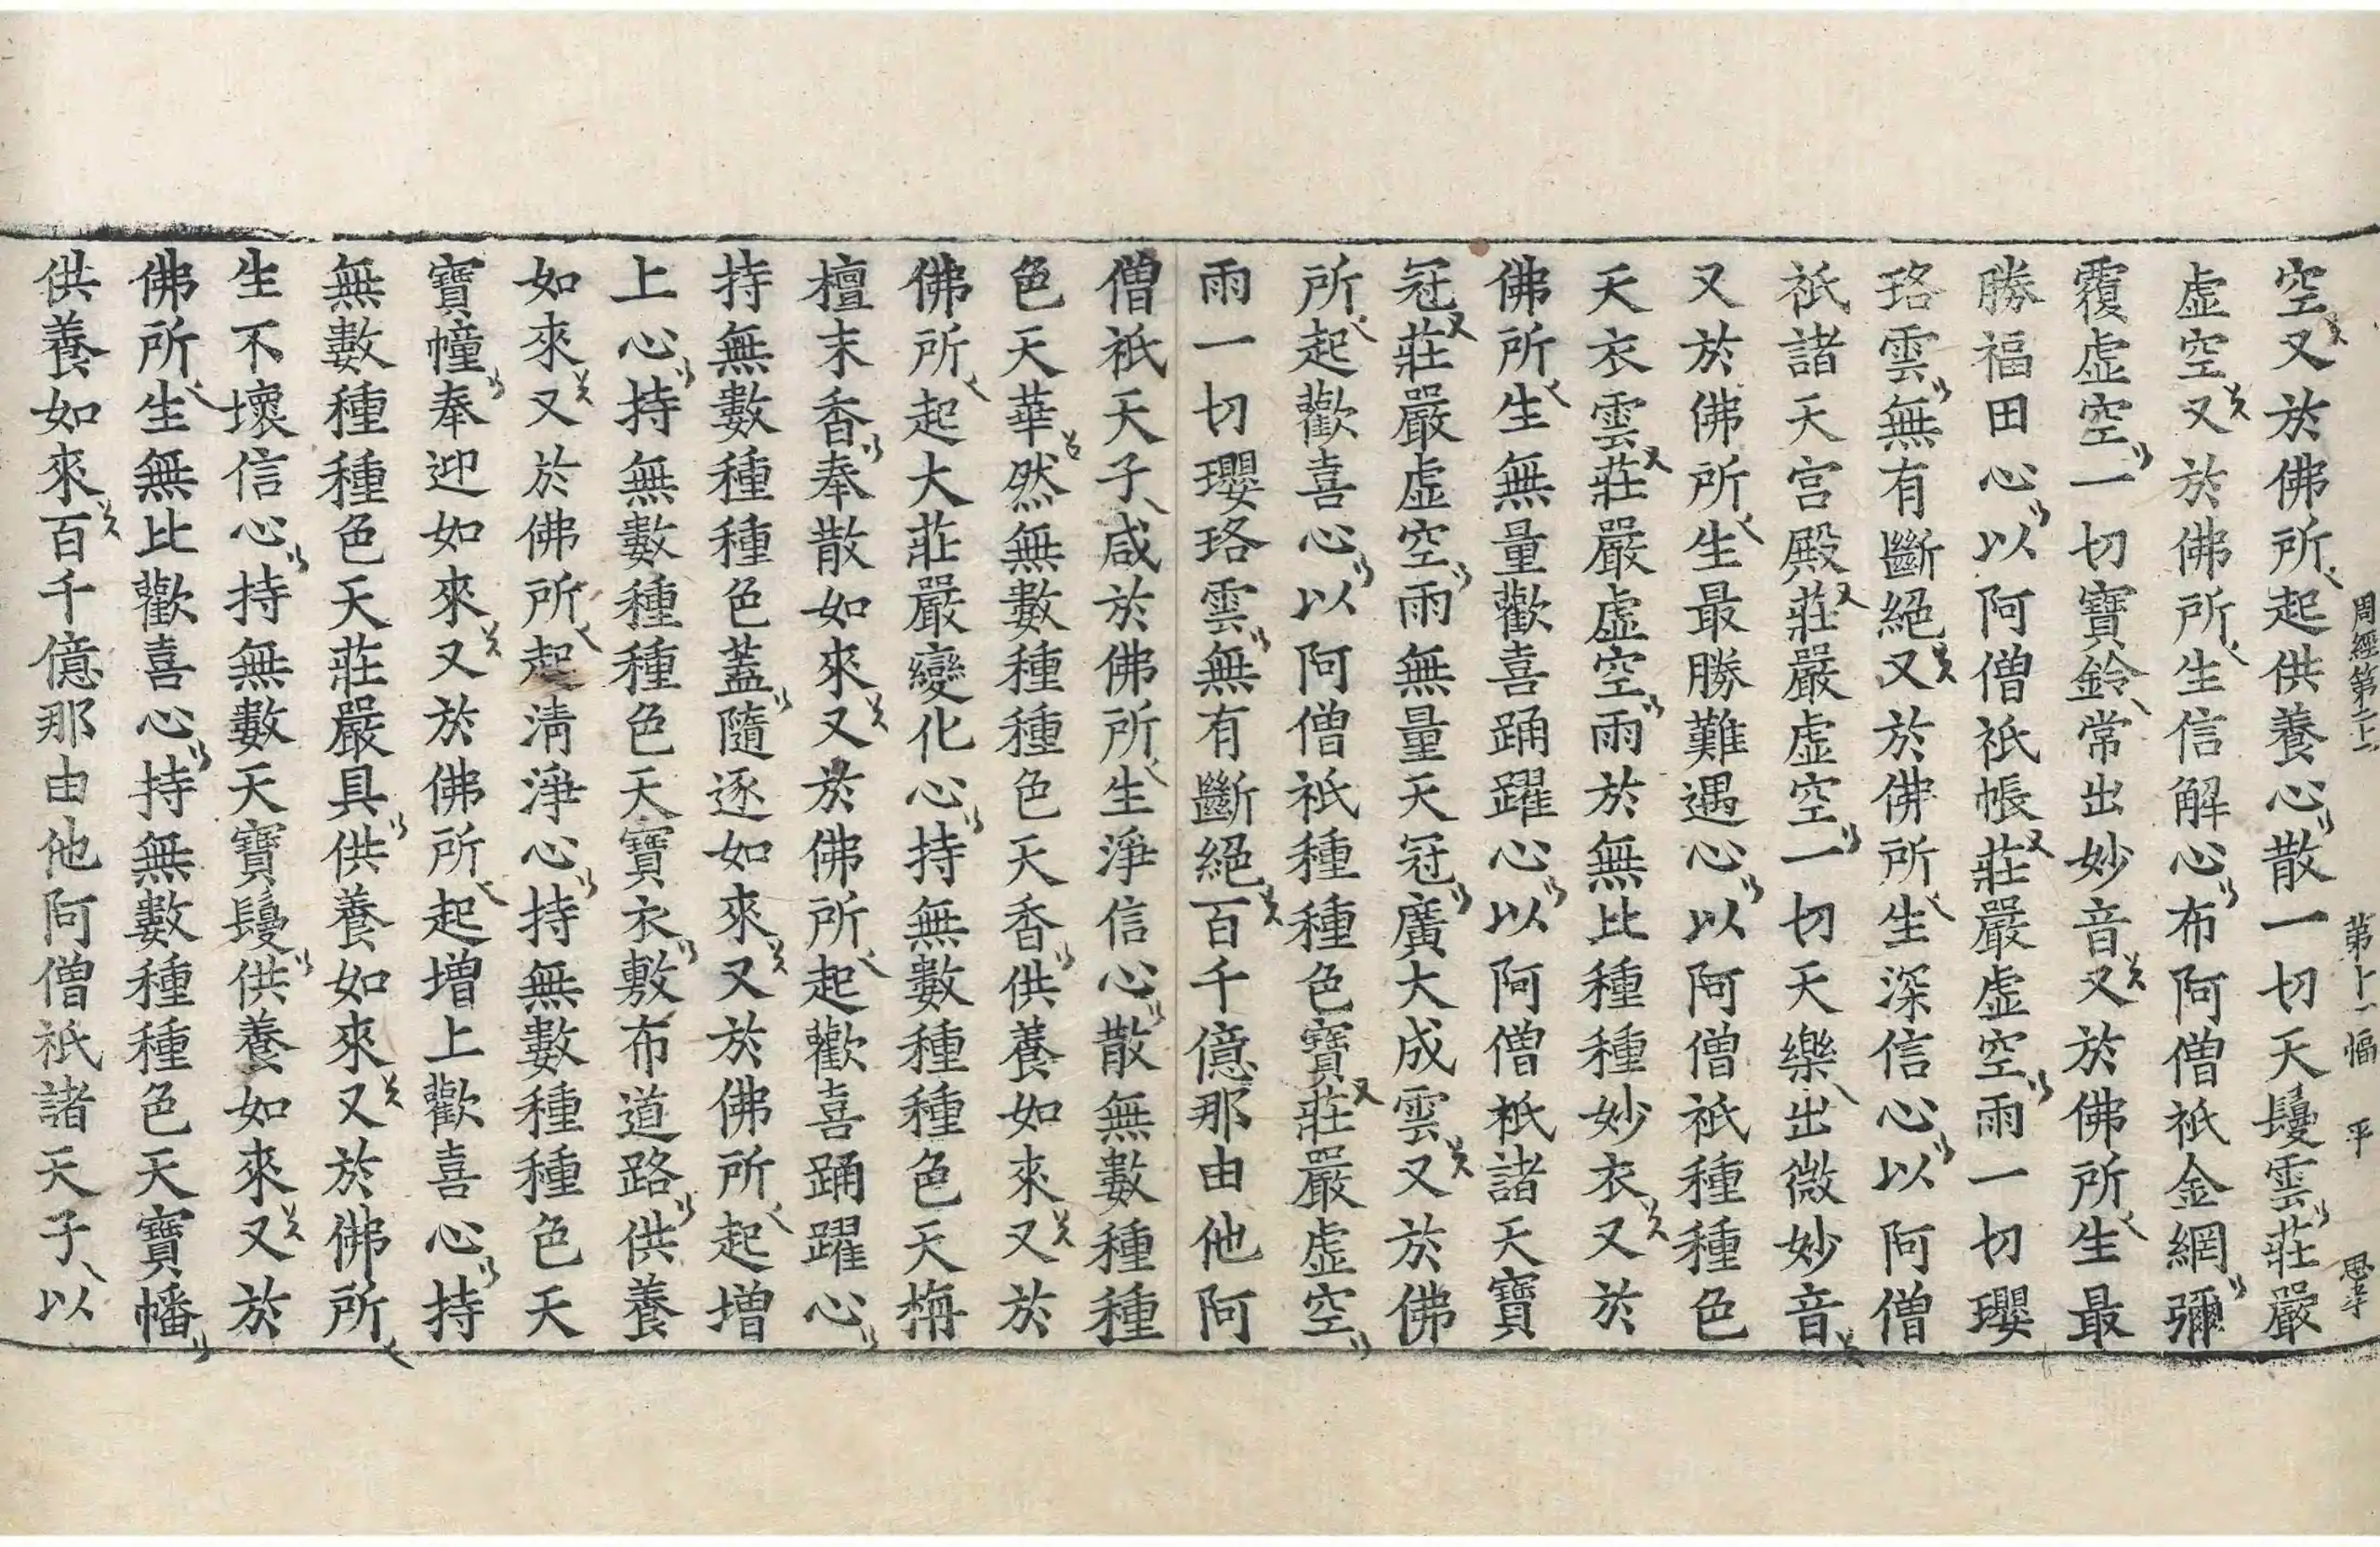 周經第二十二 第十一幅 平 思孝
空又於佛所起供養心散一切天鬘雲莊嚴
虛空又於佛所生信解心布阿僧祇金網彌
覆虛空一切寶鈴常出妙音又於佛所生最
勝福田心以阿僧祇帳莊嚴虛空雨一切瓔
珞雲無有斷絕又於佛所生深信心以阿僧
祇諸天宮殿莊嚴虛空一切天樂出微妙音
又於佛所生最勝難遇心以阿僧祇種種色
天衣雲莊嚴虛空雨於無比種種妙衣又於
佛所生無量歡喜踊躍心以阿僧祇諸天寶
冠莊嚴虛空雨無量天冠廣大成雲又於佛
所起歡喜心以阿僧祇種種色寶莊嚴虛空
雨一切瓔珞雲無有斷絕百千億那由他阿
僧祇天子咸於佛所生淨信心散無數種種
色天華然無數種種色天香供養如來又於
佛所起大莊嚴變化心持無數種種色天栴
檀末香奉散如來又於佛所起歡喜踊躍心
持無數種種色蓋隨逐如來又於佛所起增
上心持無數種種色天寶衣敷布道路供養
如來又於佛所起清淨心持無數種種色天
寶幢奉迎如來又於佛所起增上歡喜心持
無數種種色天莊嚴具供養如來又於佛所
生不壞信心持無數天寶鬘供養如來又於
佛所生無比歡喜心持無數種種色天寶幡
供養如來百千億那由他阿僧祇諸天子以